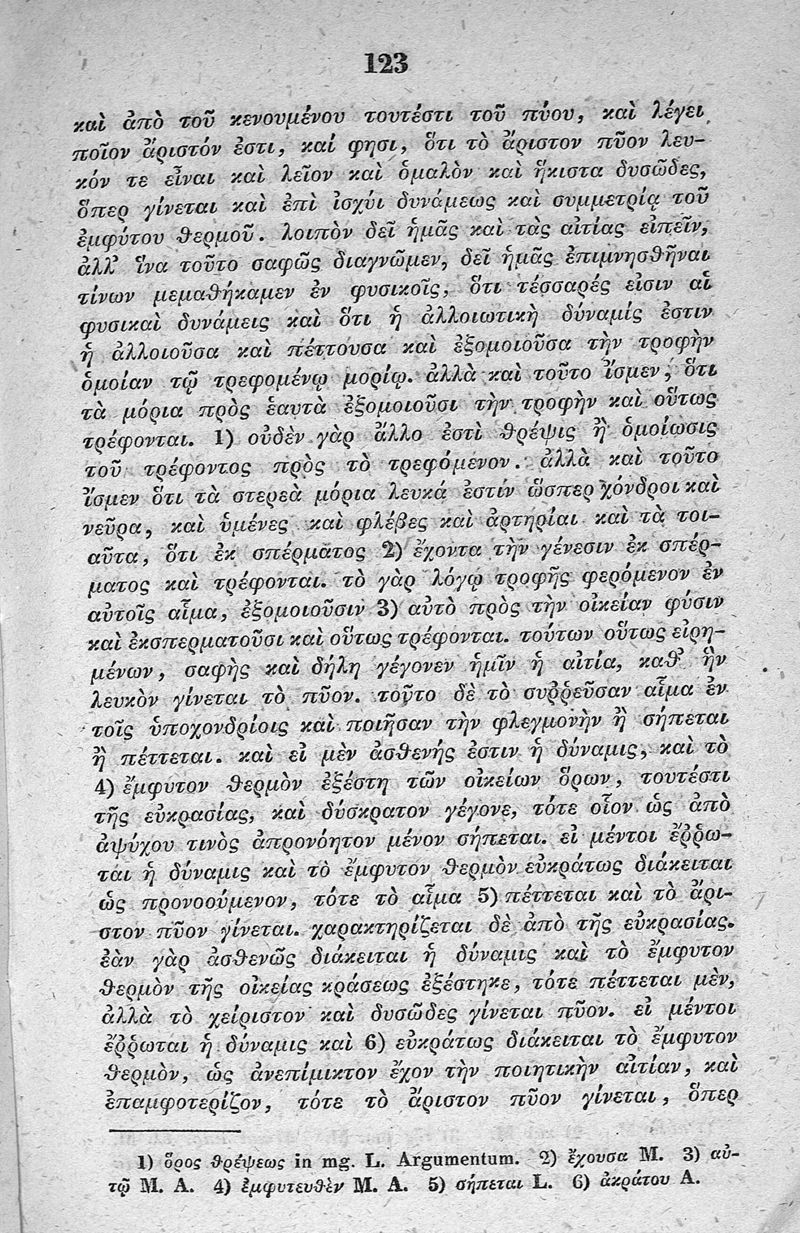 123
καὶ ἀπὸ τοῦ κενουμένου τουτέστι τοῦ πύου, καὶ λέγει
ποῖον ἄριστόν ἐστι, καί φησι, ὅτι τὸ ἄριστον πῦον λευ-
κόν τε εἶναι καὶ λεῖον καὶ ὁμαλὸν καὶ ἥκιστα δυσῶδες,
ὅπερ γίνεται καὶ ἐπὶ ἰσχύι δυνάμεως καὶ συμμετρίᾳ τοῦ
ἐμφύτου θερμοῦ. λοιπὸν δεῖ ἡμᾶς καὶ τὰς αἰτίας εἰπεῖν,
ἀλλ’ ἵνα τοῦτο σαφῶς διαγνῶμεν, δεῖ ἡμᾶς ἐπιμνησθῆναι
τίνων μεμαθήκαμεν ἐν φυσικοῖς, ὅτι τέσσαρές εἰσιν αἱ
φυσικαὶ δυνάμεις καὶ ὅτι ἡ ἀλλοιωτικὴ δύναμίς ἐστιν
ἡ ἀλλοιοῦσα καὶ πέττουσα καὶ ἐξομοιοῦσα τὴν τροφὴν
ὁμοίαν τῷ τρεφομένῳ μορίῳ. ἀλλὰ καὶ τοῦτο ἴσμεν, ὅτι
τὰ μόρια πρὸς ἑαυτὰ ἐξομοιοῦσι τὴν τροφὴν καὶ οὕτως
τρέφονται. 1) οὐδὲν γὰρ ἄλλο ἐστὶ θρέψις ἢ ὁμοίωσις
τοῦ τρέφοντος πρὸς τὸ τρεφόμενον. ἀλλὰ καὶ τοῦτο
ἴσμεν ὅτι τὰ στερεὰ μόρια λευκά ἐστίν ὥσπερ χόνδροι καὶ
νεῦρα, καὶ ὑμένες καὶ φλέβες καὶ ἀρτηρίαι καὶ τὰ τοι-
αῦτα, ὅτι ἐκ σπέρματος 2) ἔχοντα τὴν γένεσιν ἐκ σπέρ-
ματος καὶ τρέφονται. τὸ γὰρ λόγῳ τροφῆς φερόμενον ἐν
αὐτοῖς αἷμα, ἐξομοιοῦσιν 3) αὐτὸ πρὸς τὴν οἰκείαν φύσιν
καὶ ἐκσπερματοῦσι καὶ οὕτως τρέφονται. τούτων οὕτως εἰρη-
μένων, σαφὴς καὶ δήλη γέγονεν ἡμῖν ἡ αἰτία, καθ’ ἣν
λευκὸν γίνεται τὸ πῦον. τοῦτο δὲ τὸ συῤῥεῦσαν αἷμα ἐν
τοῖς ὑποχονδρίοις καὶ ποιῆσαν τὴν φλεγμονὴν ἢ σήπεται
ἢ πέττεται. καὶ εἰ μὲν ἀσθενής ἐστιν ἡ δύναμις, καὶ τὸ
4) ἔμφυτον θερμὸν ἐξέστη τῶν οἰκείων ὅρων, τουτέστι
τῆς εὐκρασίας, καὶ δύσκρατον γέγονε, τότε οἷον ὡς ἀπὸ
ἀψύχου τινὸς ἀπρονόητον μένον σήπεται. εἰ μέντοι ἔῤῥω-
ται ἡ δύναμις καὶ τὸ ἔμφυτον θερμὸν εὐκράτως διάκειται
ὡς προνοούμενον, τότε τὸ αἷμα 5) πέττεται καὶ τὸ ἄρι-
στον πῦον γίνεται. χαρακτηρίζεται δὲ ἀπὸ τῆς εὐκρασίας.
ἐὰν γὰρ ἀσθενῶς διάκειται ἡ δύναμις καὶ τὸ ἔμφυτον
θερμὸν τῆς οἰκείας κράσεως ἐξέστηκε, τότε πέττεται μὲν,
ἀλλὰ τὸ χείριστον καὶ δυσῶδες γίνεται πῦον. εἰ μέντοι
ἔῤῥωται ἡ δύναμις καὶ 6) εὐκράτως διάκειται τὸ ἔμφυτον
θερμὸν, ὡς ἀνεπίμικτον ἔχον τὴν ποιητικὴν αἰτίαν, καὶ
ἐπαμφοτερίζον, τότε τὸ ἄριστον πῦον γίνεται, ὅπερ
1) ὅρος θρέψεως in mg. L. Argumentum. 2) ἔχουσα M. 3) αὐ-
τῷ M. A. 4) ἐμφυτευθὲν M. A. 5) σήπεται L. 6) ἀκράτου A.